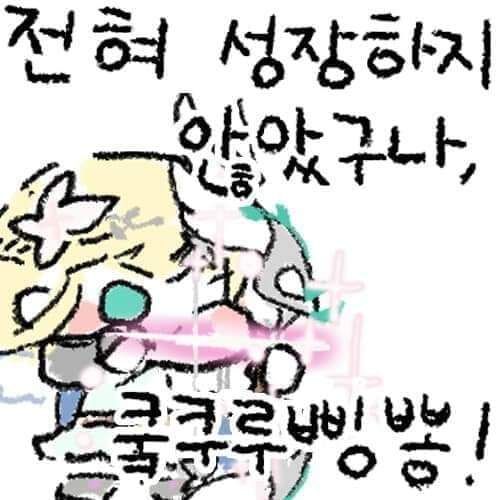 전혀 성장하지
않았구나,
쿨쿠루삥뽕!